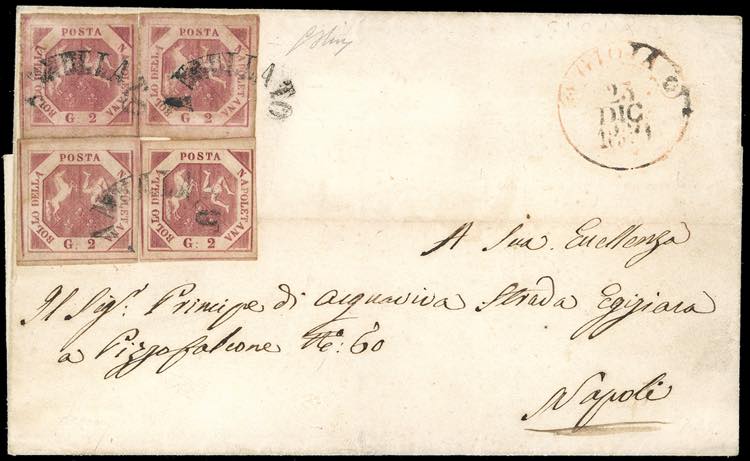 POSTA
BOLLO DELLA
NAPOLETANA
G. 2
POSTA
BOLLO DELLA
NAPOLETANA
G. 2
ANNULLATO
ANNULLATO
POSTA
BOLLO DELLA
NAPOLETANA
G. 2
POSTA
BOLLO DELLA
NAPOLETANA
G. 2
25
DIC
A Sua Eccellenza
Il Sigr. Principe di Acquaviva Strada Egiziaca
a Pizzofalcone No: 60
Napoli